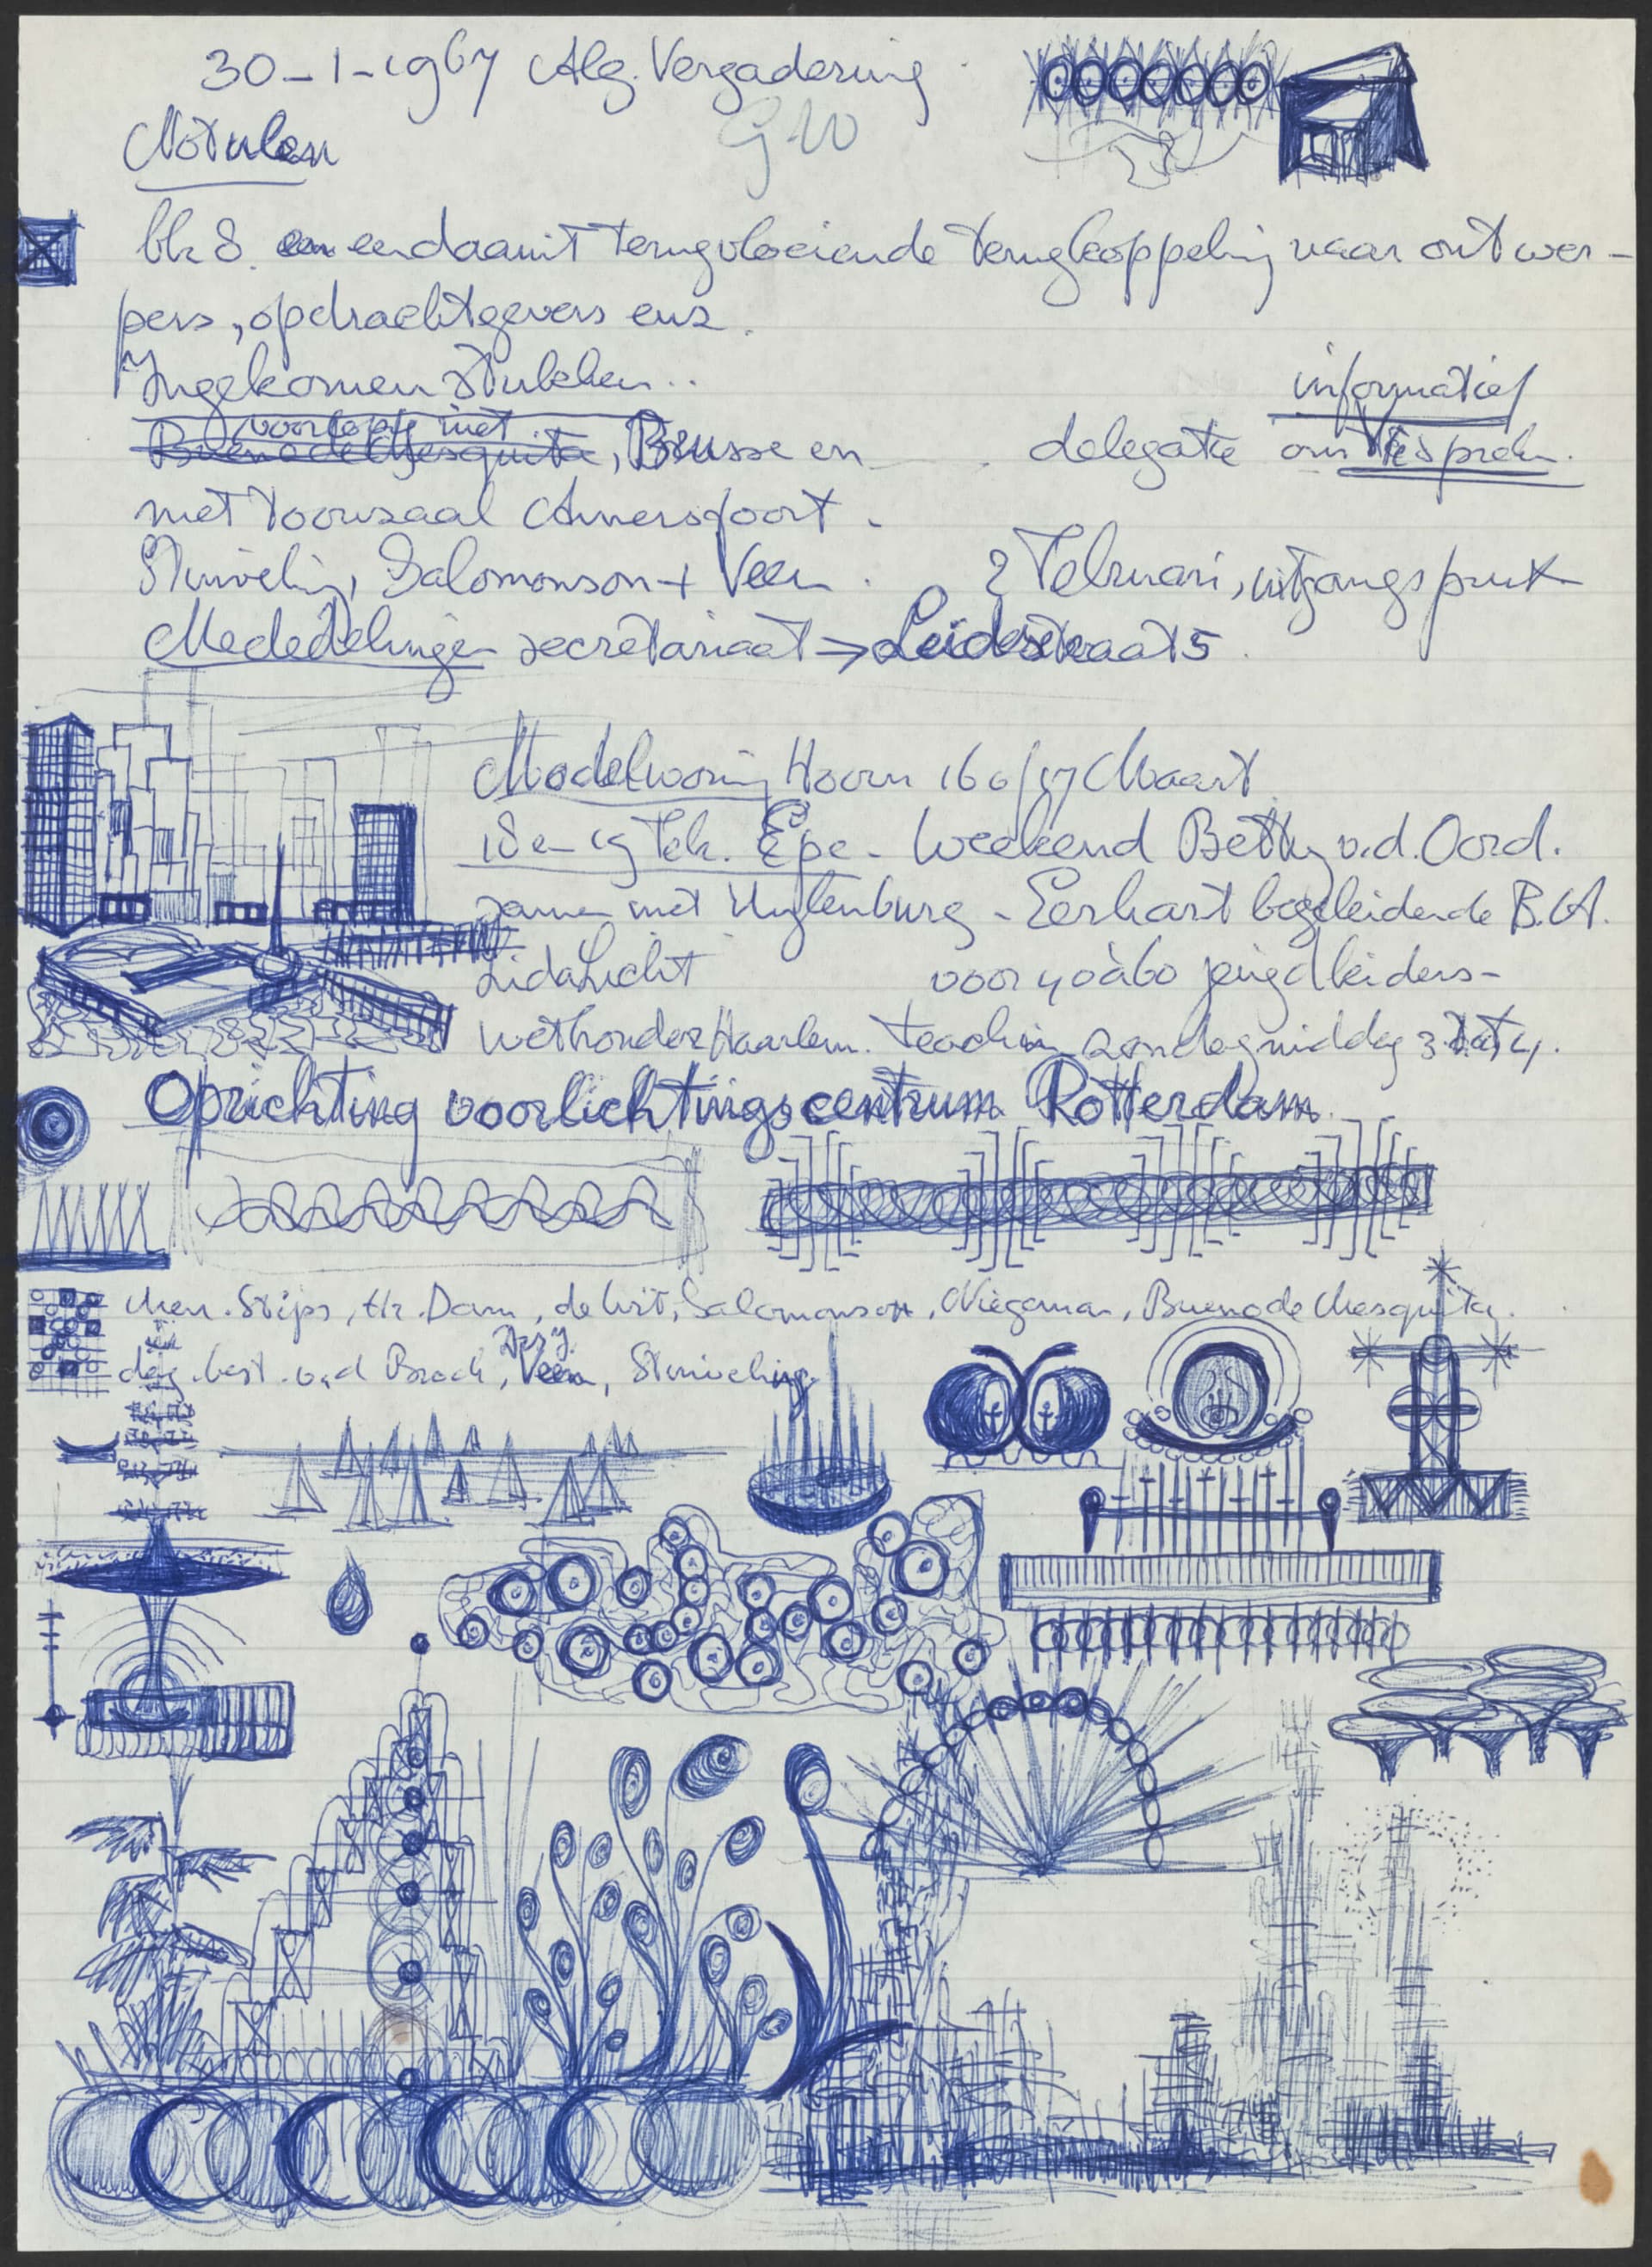 30-1-1967 Alg. Vergadering
GW
Notulen
blz 8. een eendaaruit terugvloeiende terugkoppeling naar ontwer-
pers, opdrachtgevers enz.
Ingekomen stukken..
informatief
voorlopig niet
Bueno de Mesquita, Brusse en delegatie om te spreken.
met toonzaal Amersfoort.
Stuiveling, Salomonson + Veen. 2 Februari, uitgangspunt
Mededelingen secretariaat → Leidsestraat 5.
Modelwoning Hoorn 16 of 17 Maart
18 en 19 Feb. Epe - Weekend Betty v.d. Oord.
samen met Uylenburg - Eerhart begeleidende B.A.
Lida Licht voor 40 à 60 jeugdleiders-
wethouder Haarlem. teach in zondagmiddag 3 tot 4.
Oprichting voorlichtingscentrum Rotterdam.
Stips, Hr. Dam, de Wit, Salomonson, Wiegman, Bueno de Mesquita.
dag. best. v.d Broek, Veen, Stuiveling.